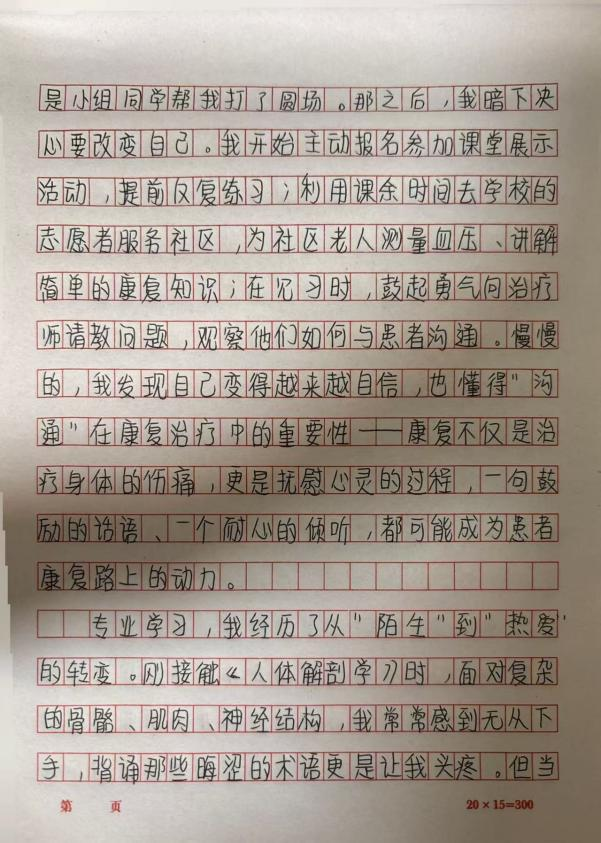 是小组同学帮我打了圆场。那之后，我暗下决
心要改变自己。我开始主动报名参加课堂展示
活动，提前反复练习；利用课余时间去学校的
志愿者服务社区，为社区老人测量血压、讲解
简单的康复知识；在见习时，鼓起勇气向治疗
师请教问题，观察他们如何与患者沟通。慢慢
的，我发现自己变得越来越自信，也懂得"沟
通"在康复治疗中的重要性——康复不仅是治
疗身体的伤痛，更是抚慰心灵的过程，一句鼓
励的话语、一个耐心的倾听，都可能成为患者
康复路上的动力。
专业学习，我经历了从"陌生"到"热爱"
的转变。刚接触《人体解剖学》时，面对复杂
的骨骼、肌肉、神经结构，我常常感到无从下
手，背诵那些晦涩的术语更是让我头疼。但当
第 页
20×15=300